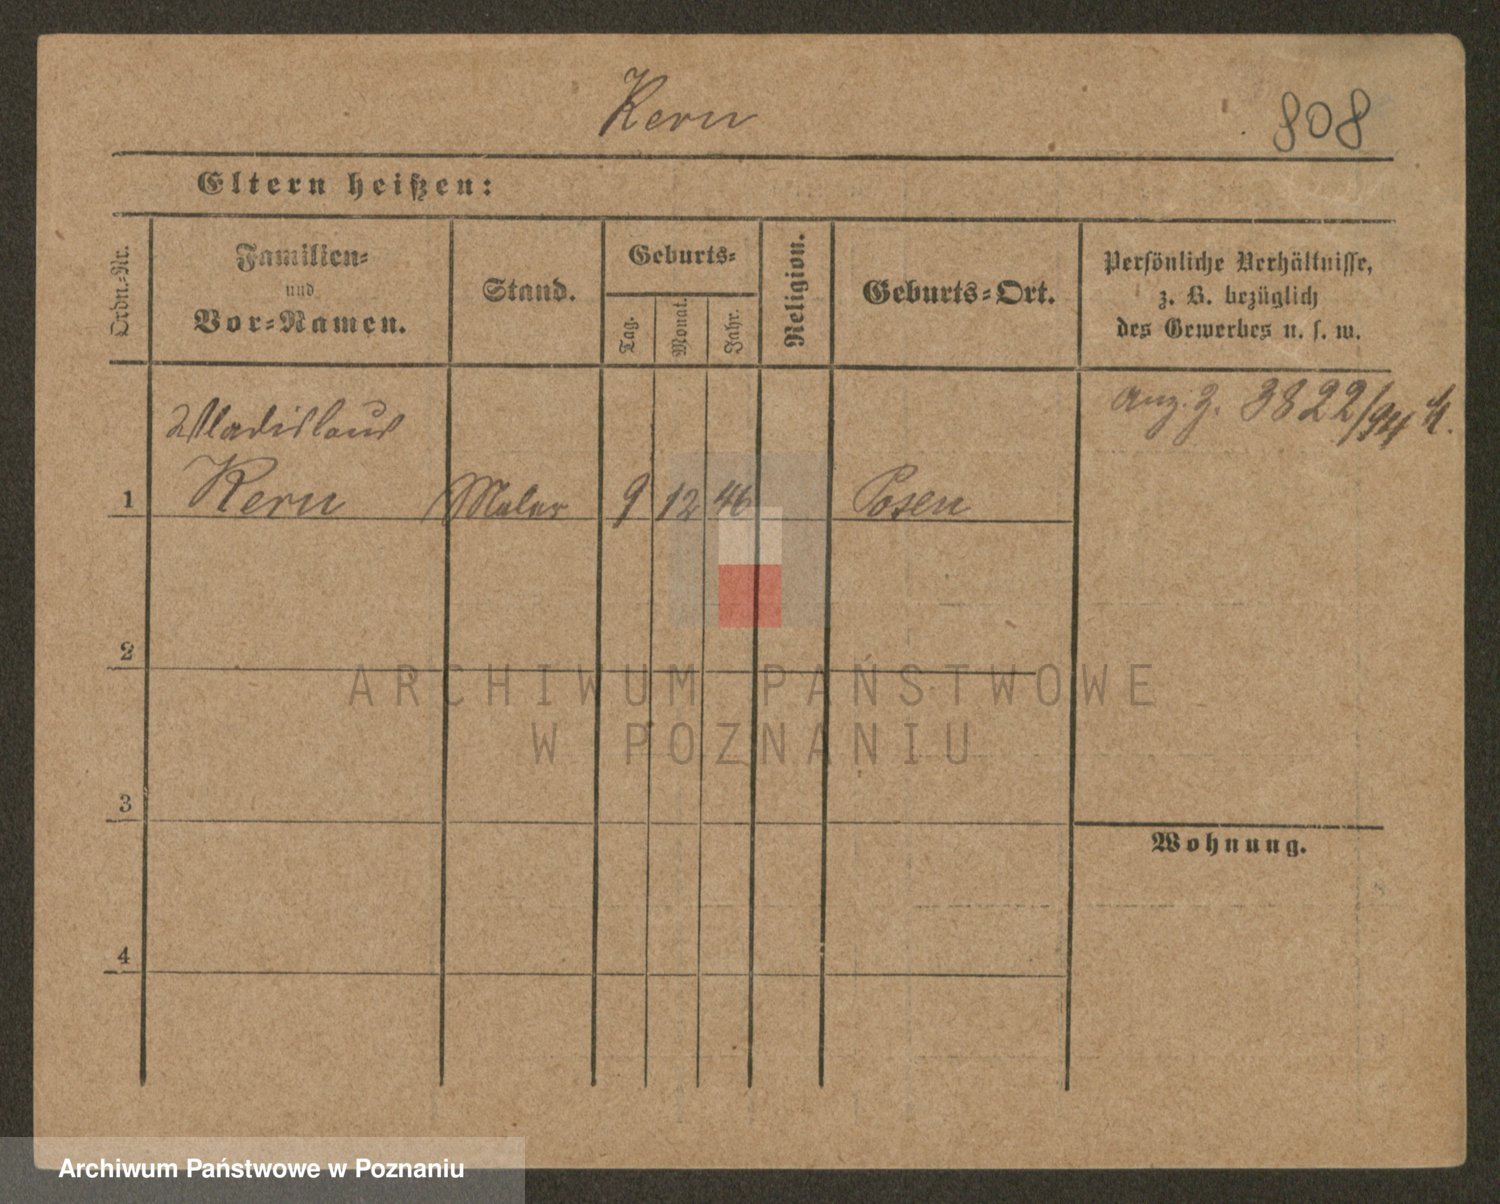 Kern
808
Eltern heißen:
Ordn.-Nr.
Familien-
und
Vor-Namen.
Stand.
Geburts-
Tag.
Monat.
Jahr.
Religion.
Geburts-Ort.
Persönliche Verhältnisse,
z. B. bezüglich
des Gewerbes u. s. w.
Wladislaus
Anz. Z. 3822/94
1 Kern Maler 9 12 46 Posen
2
ARCHIWUM PAŃSTWOWE
W POZNANIU
3
Wohnung.
4
Archiwum Państwowe w Poznaniu